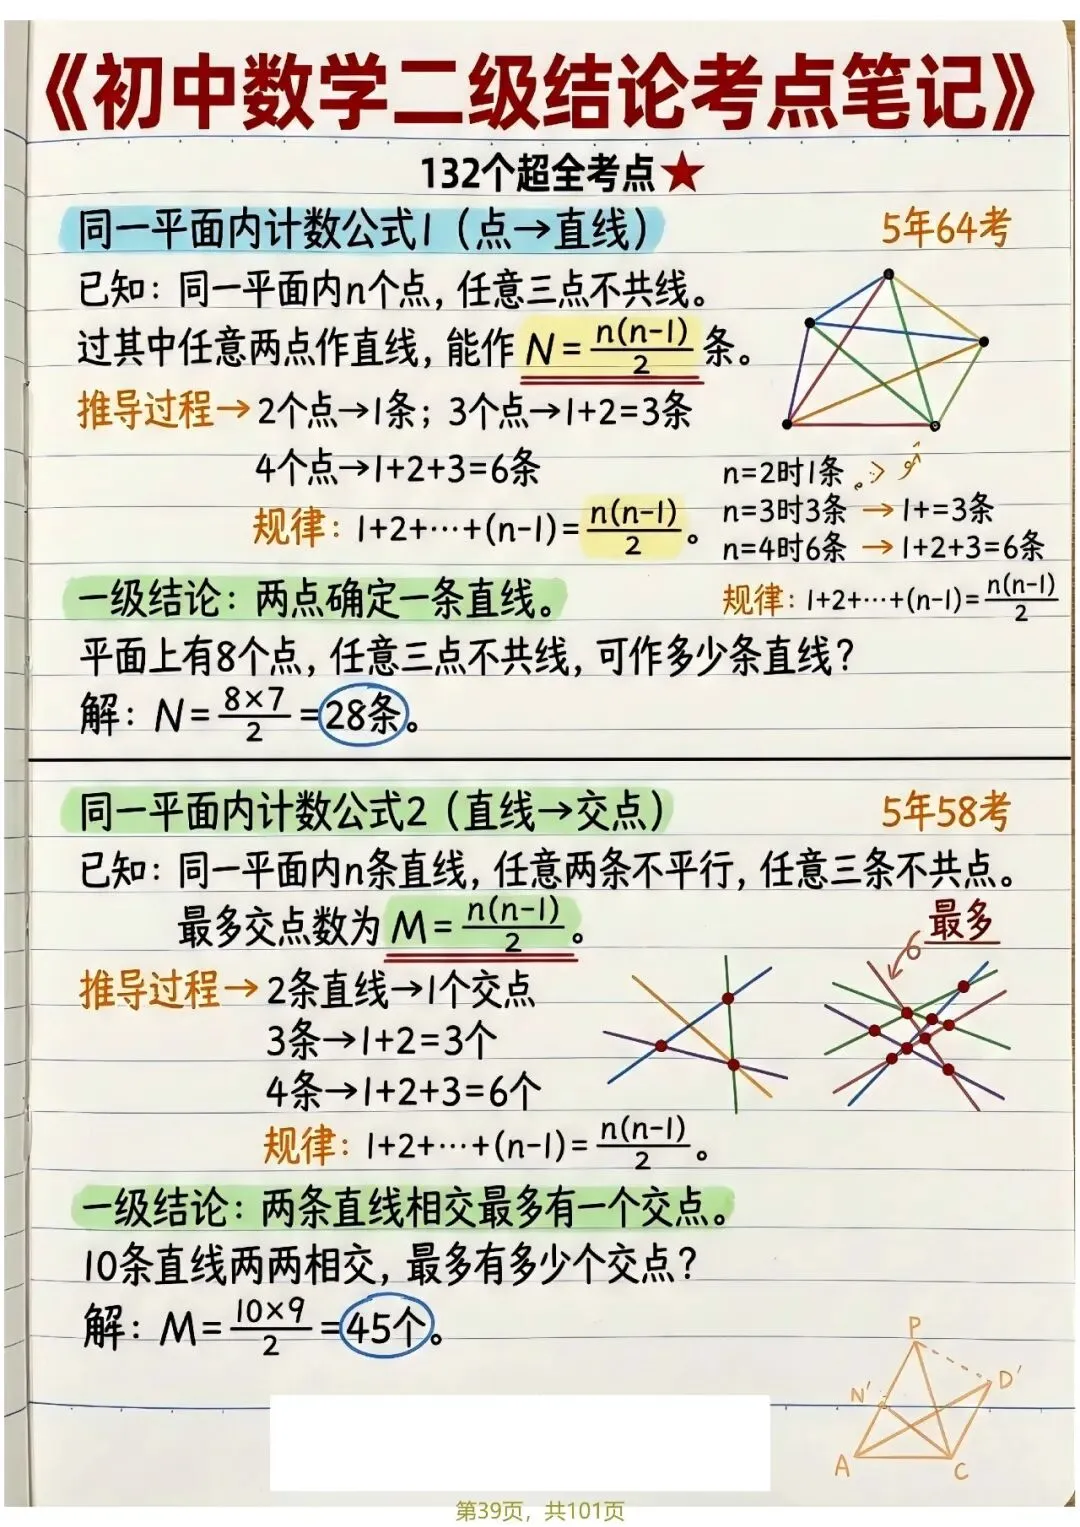 《初中数学二级结论考点笔记》
132个超全考点★
同一平面内计数公式1（点→直线）
5年64考
已知：同一平面内n个点，任意三点不共线。
过其中任意两点作直线，能作 N = n(n-1)/2 条。
推导过程→ 2个点→1条；3个点→1+2=3条
4个点→1+2+3=6条
规律：1+2+⋯+(n-1)= n(n-1)/2。
n=2时1条
n=3时3条 → 1+=3条
n=4时6条 → 1+2+3=6条
规律：1+2+⋯+(n-1)= n(n-1)/2
一级结论：两点确定一条直线。
平面上有8个点，任意三点不共线，可作多少条直线？
解：N = 8×7/2 = 28条。
同一平面内计数公式2（直线→交点）
5年58考
已知：同一平面内n条直线，任意两条不平行，任意三条不共点。
最多交点数为 M = n(n-1)/2。
最多
6
推导过程→ 2条直线→1个交点
3条→1+2=3个
4条→1+2+3=6个
规律：1+2+⋯+(n-1)= n(n-1)/2。
一级结论：两条直线相交最多有一个交点。
10条直线两两相交，最多有多少个交点？
解：M = 10×9/2 = 45个。
P
N′
D′
A
C
第39页，共101页